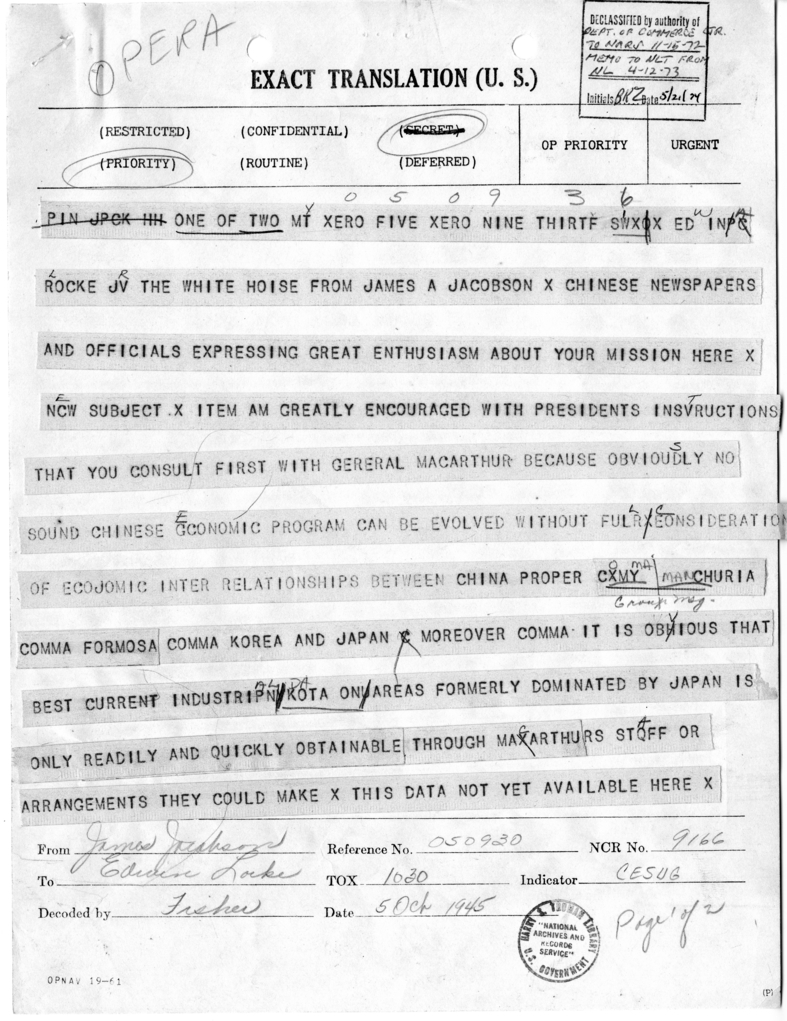 OPERA
1
DECLASSIFIED by authority of
DEPT. OF COMMERCE LTR.
TO NARS 11-16-72
MEMO TO NLT FROM
NL 4-12-73
Initials BKZ Date 5/21/74
EXACT TRANSLATION (U. S.)
(RESTRICTED) (CONFIDENTIAL) (SECRET) OP PRIORITY URGENT
(PRIORITY) (ROUTINE) (DEFERRED)
0 5 0 9 3 6
PIN JPCK HH ONE OF TWO MT XERO FIVE XERO NINE THIRTF SWXOX ED INPC
ROCKE JV THE WHITE HOISE FROM JAMES A JACOBSON X CHINESE NEWSPAPERS
AND OFFICIALS EXPRESSING GREAT ENTHUSIASM ABOUT YOUR MISSION HERE X
NCW SUBJECT X ITEM AM GREATLY ENCOURAGED WITH PRESIDENTS INSVRUCTIONS
THAT YOU CONSULT FIRST WITH GERERAL MACARTHUR BECAUSE OBVIOUDLY NO
SOUND CHINESE GCONOMIC PROGRAM CAN BE EVOLVED WITHOUT FULRXEONSIDERATION
OF ECOJOMIC INTER RELATIONSHIPS BETWEEN CHINA PROPER CXMY MANCHURIA
Group msg.
COMMA FORMOSA COMMA KOREA AND JAPAN X MOREOVER COMMA IT IS OBHIOUS THAT
BEST CURRENT INDUSTRIPN KOTA ONU AREAS FORMERLY DOMINATED BY JAPAN IS
ONLY READILY AND QUICKLY OBTAINABLE THROUGH MAXARTHURS STQFF OR
ARRANGEMENTS THEY COULD MAKE X THIS DATA NOT YET AVAILABLE HERE X
From James Jacobson Reference No. 050930 NCR No. 9166
To Edwin Locke TOX 1030 Indicator CESUG
Decoded by Fisher Date 5 Oct 1945
HARRY S. TRUMAN LIBRARY
"NATIONAL
ARCHIVES AND
RECORDS
SERVICE"
U.S. GOVERNMENT
Page 1 of 2
OPNAV 19-61
(P)